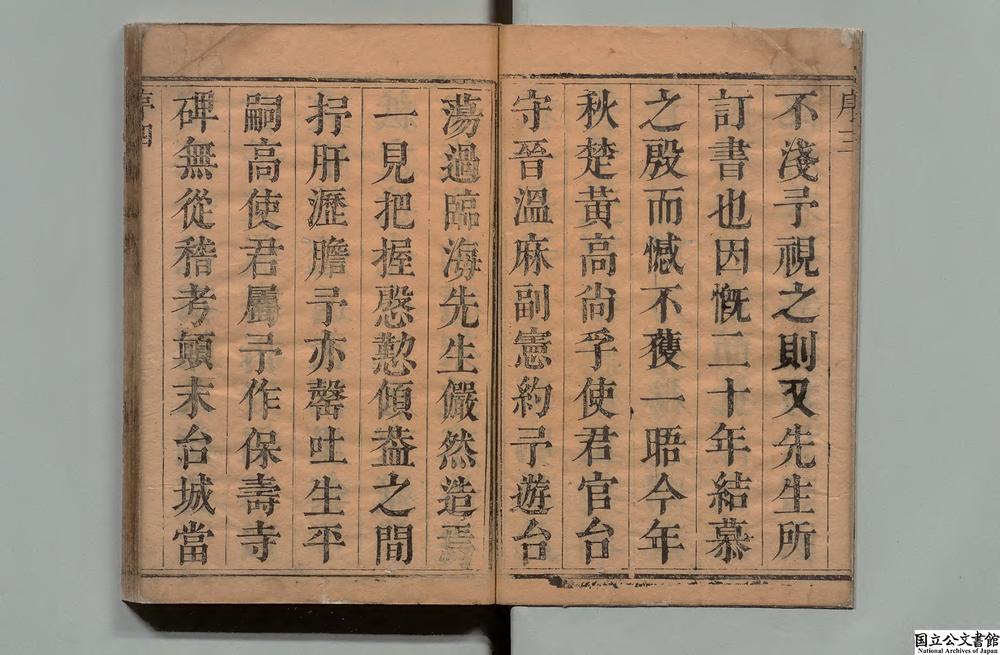 序三
不淺予視之則又先生所
訂書也因慨二十年結慕
之殷而憾不獲一晤今年
秋楚黃高尚孚使君官台
守晉溫麻副憲約予遊台
蕩過臨海先生儼然造焉
一見把握慇懃傾葢之間
抒肝瀝膽予亦罄吐生平
嗣高使君屬予作保壽寺
碑無從稽考顛末台城當
序四
国立公文書館
National Archives of Japan